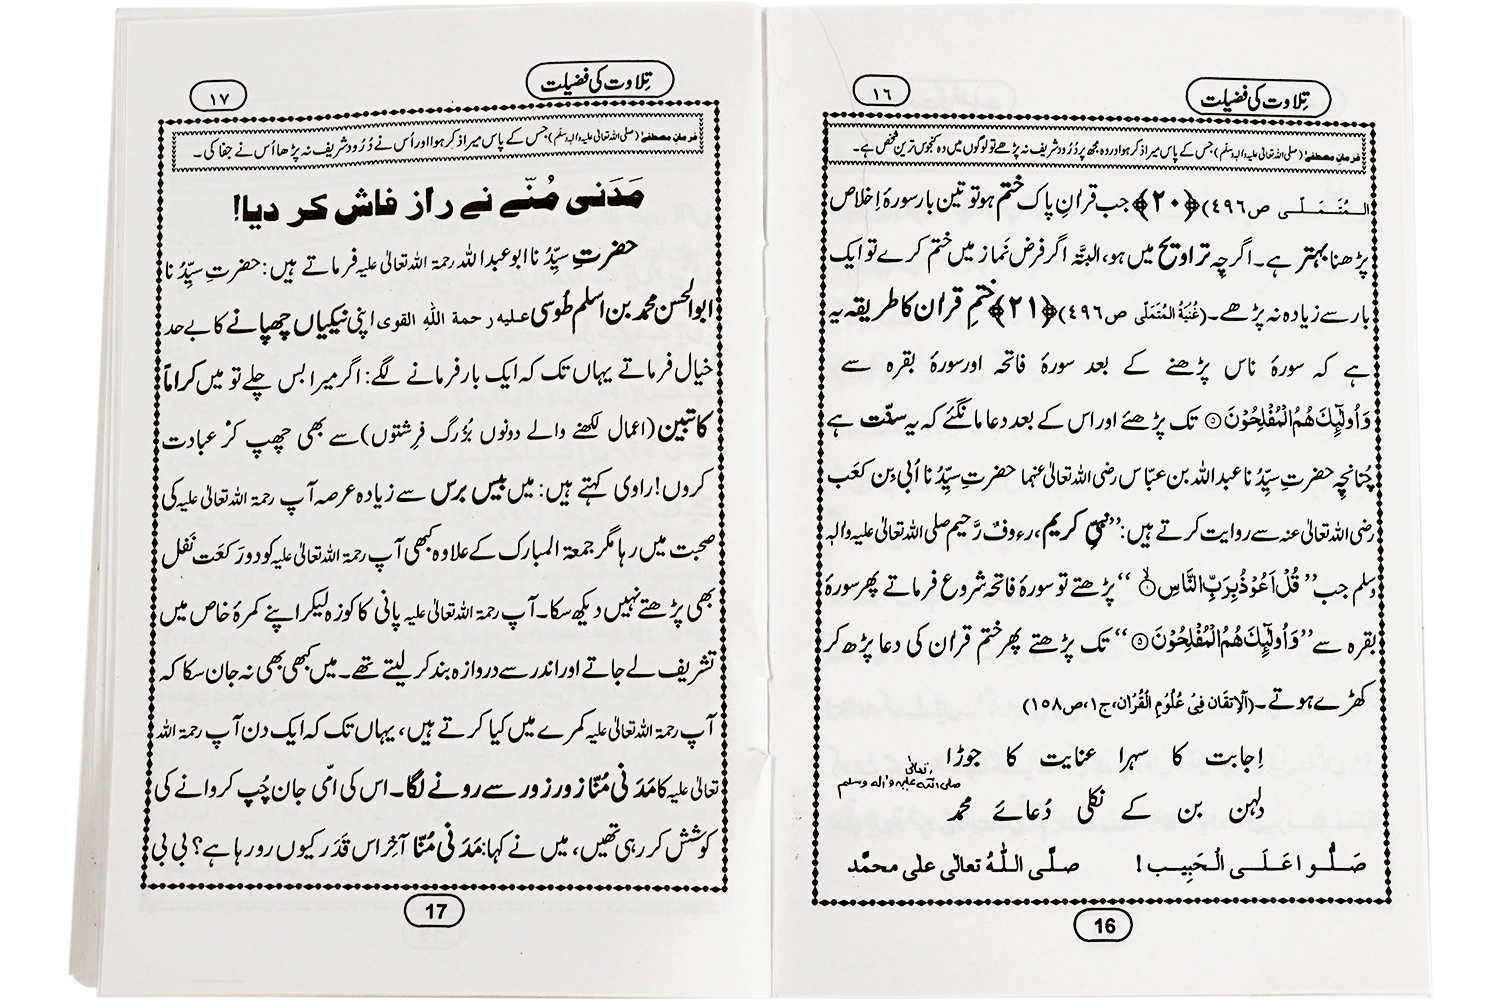 تِلاوت کی فضیلت
١٦
فرمانِ مصطفےٰ (صلی اللہ تعالیٰ علیہ والہ وسلم) جس کے پاس میرا ذکر ہوا اور وہ مجھ پر دُرُود شریف نہ پڑھے تو لوگوں میں وہ کنجوس ترین شخص ہے۔
المُتَمَلّی ص٤٩٦) ﴿٢٠﴾ جب قرانِ پاک ختم ہو تو تین بار سورۂ اِخلاص
پڑھنا بہتر ہے۔ اگرچِہ تراویح میں ہو، البتّہ اگر فرض نَماز میں ختم کرے تو ایک
بار سے زیادہ نہ پڑھے۔ (غُنْیَۃُ المُتَمَلّی ص٤٩٦) ﴿٢١﴾ ختمِ قران کا طریقہ یہ
ہے کہ سورۂ ناس پڑھنے کے بعد سورۂ فاتحہ اور سورۂ بقرہ سے
وَاُولٰٓئِکَ ھُمُ الْمُفْلِحُوْنَ ۝ تک پڑھئے اور اس کے بعد دعا مانگئے کہ یہ سنّت ہے
چُنانچِہ حضرتِ سیِّدُنا عبداللہ بن عبّاس رضی اللہ تعالیٰ عنہما حضرتِ سیِّدُنا اُبی بن کَعب
رضی اللہ تعالیٰ عنہ سے روایت کرتے ہیں: ”نبیِّ کریم، رءوفٌ رَّحیم صلی اللہ تعالیٰ علیہ والہٖ
وسلم جب ”قُلْ اَعُوْذُ بِرَبِّ النَّاسِ ۝“ پڑھتے تو سورۂ فاتحہ شروع فرماتے پھر سورۂ
بقرہ سے ”وَاُولٰٓئِکَ ھُمُ الْمُفْلِحُوْنَ ۝“ تک پڑھتے پھر ختم قران کی دعا پڑھ کر
کھڑے ہوتے۔ (اَلْاِتقان فِیْ عُلُوْمِ الْقُرْان، ج۱، ص۱۵۸)
اِجابت کا سہرا عنایت کا جوڑا
دلہن بن کے نکلی دُعائے محمد صلی اللہ تعالیٰ علیہ والہ وسلم
صَلُّوا عَلَی الْحَبِیب! صلَّی اللّٰہُ تعالٰی علٰی محمَّد
16
تِلاوت کی فضیلت
١٧
فرمانِ مصطفےٰ (صلی اللہ تعالیٰ علیہ والہ وسلم) جس کے پاس میرا ذکر ہوا اور اُس نے دُرُود شریف نہ پڑھا اُس نے جفا کی۔
مَدَنی مُنّے نے راز فاش کر دیا!
حضرتِ سیِّدُنا ابو عبداللہ رحمۃ اللہ تعالیٰ علیہ فرماتے ہیں: حضرتِ سیِّدُنا
ابوالحسن محمد بن اسلم طُوسی علیہ رحمۃ اللہِ القوی اپنی نیکیاں چھپانے کا بے حد
خیال فرماتے یہاں تک کہ ایک بار فرمانے لگے: اگر میرا بس چلے تو میں کراماً
کاتبین (اعمال لکھنے والے دونوں بُزُرگ فرِشتوں) سے بھی چھپ کر عبادت
کروں! راوی کہتے ہیں: میں بیس برس سے زیادہ عرصہ آپ رحمۃ اللہ تعالیٰ علیہ کی
صحبت میں رہا مگر جمعۃ المبارک کے علاوہ کبھی آپ رحمۃ اللہ تعالیٰ علیہ کو دو رَکعَت نَفل
بھی پڑھتے نہیں دیکھ سکا۔ آپ رحمۃ اللہ تعالیٰ علیہ پانی کا کوزہ لیکر اپنے کمرۂ خاص میں
تشریف لے جاتے اور اندر سے دروازہ بند کر لیتے تھے۔ میں کبھی بھی نہ جان سکا کہ
آپ رحمۃ اللہ تعالیٰ علیہ کمرے میں کیا کرتے ہیں، یہاں تک کہ ایک دن آپ رحمۃ اللہ
تعالیٰ علیہ کا مَدَنی مُنّا زور زور سے رونے لگا۔ اس کی امّی جان چُپ کروانے کی
کوشش کر رہی تھیں، میں نے کہا: مَدَنی مُنّا آخِر اس قَدَر کیوں رو رہا ہے؟ بی بی
17